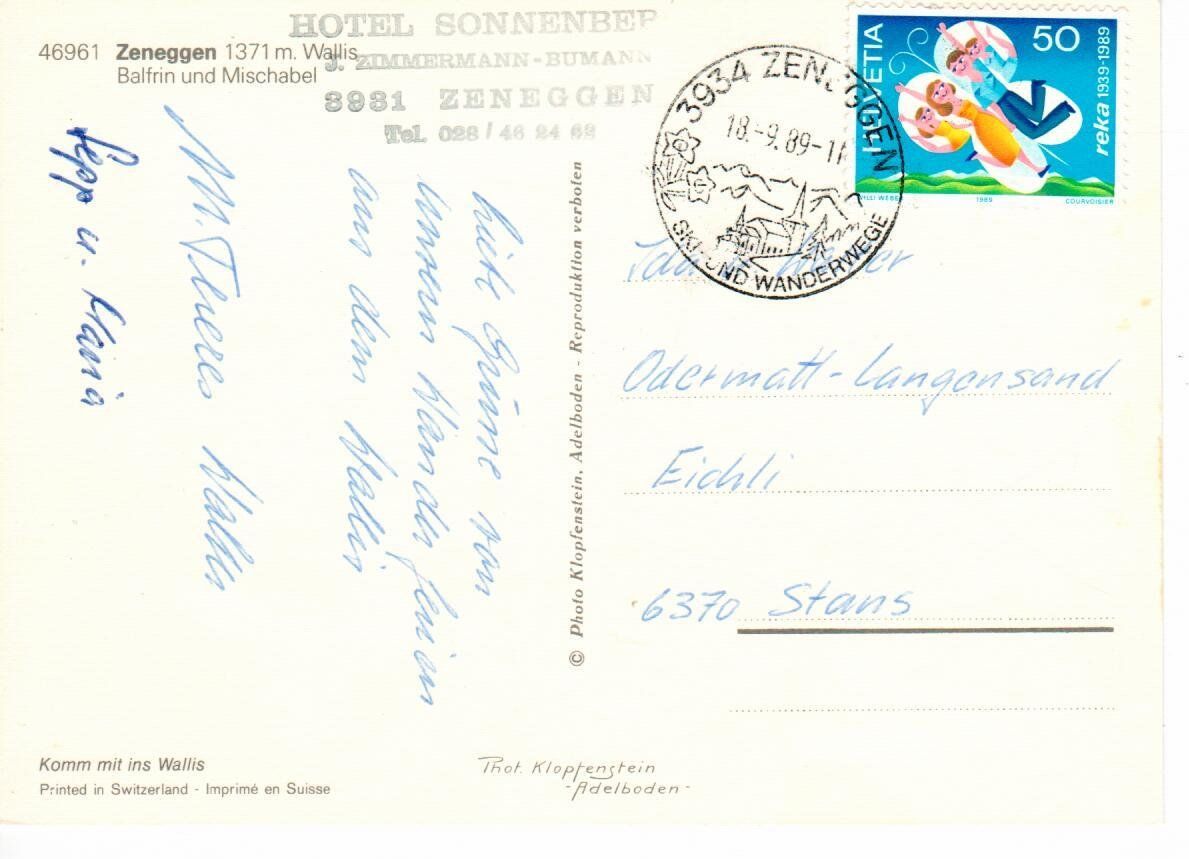 46961 Zeneggen 1371 m. Wallis
Balfrin und Mischabel
HOTEL SONNENBER
J. ZIMMERMANN-BUMANN
3931 ZENEGGEN
Tel. 028 / 46 24 62
3934 ZENEGGEN
18.-9.89-1
SKI- UND WANDERWEGE
HELVETIA
50
reka 1939-1989
WILLI WEBER 1989 COURVOISIER
Grüsse von
unsern Wanderferien
aus dem Wallis
M. Theres
Sepp u. Maria
© Photo Klopfenstein, Adelboden - Reproduktion verboten
Odermatt-Langensand
Eichli
6370 Stans
Komm mit ins Wallis
Printed in Switzerland - Imprimé en Suisse
Phot. Klopfenstein
-Adelboden-